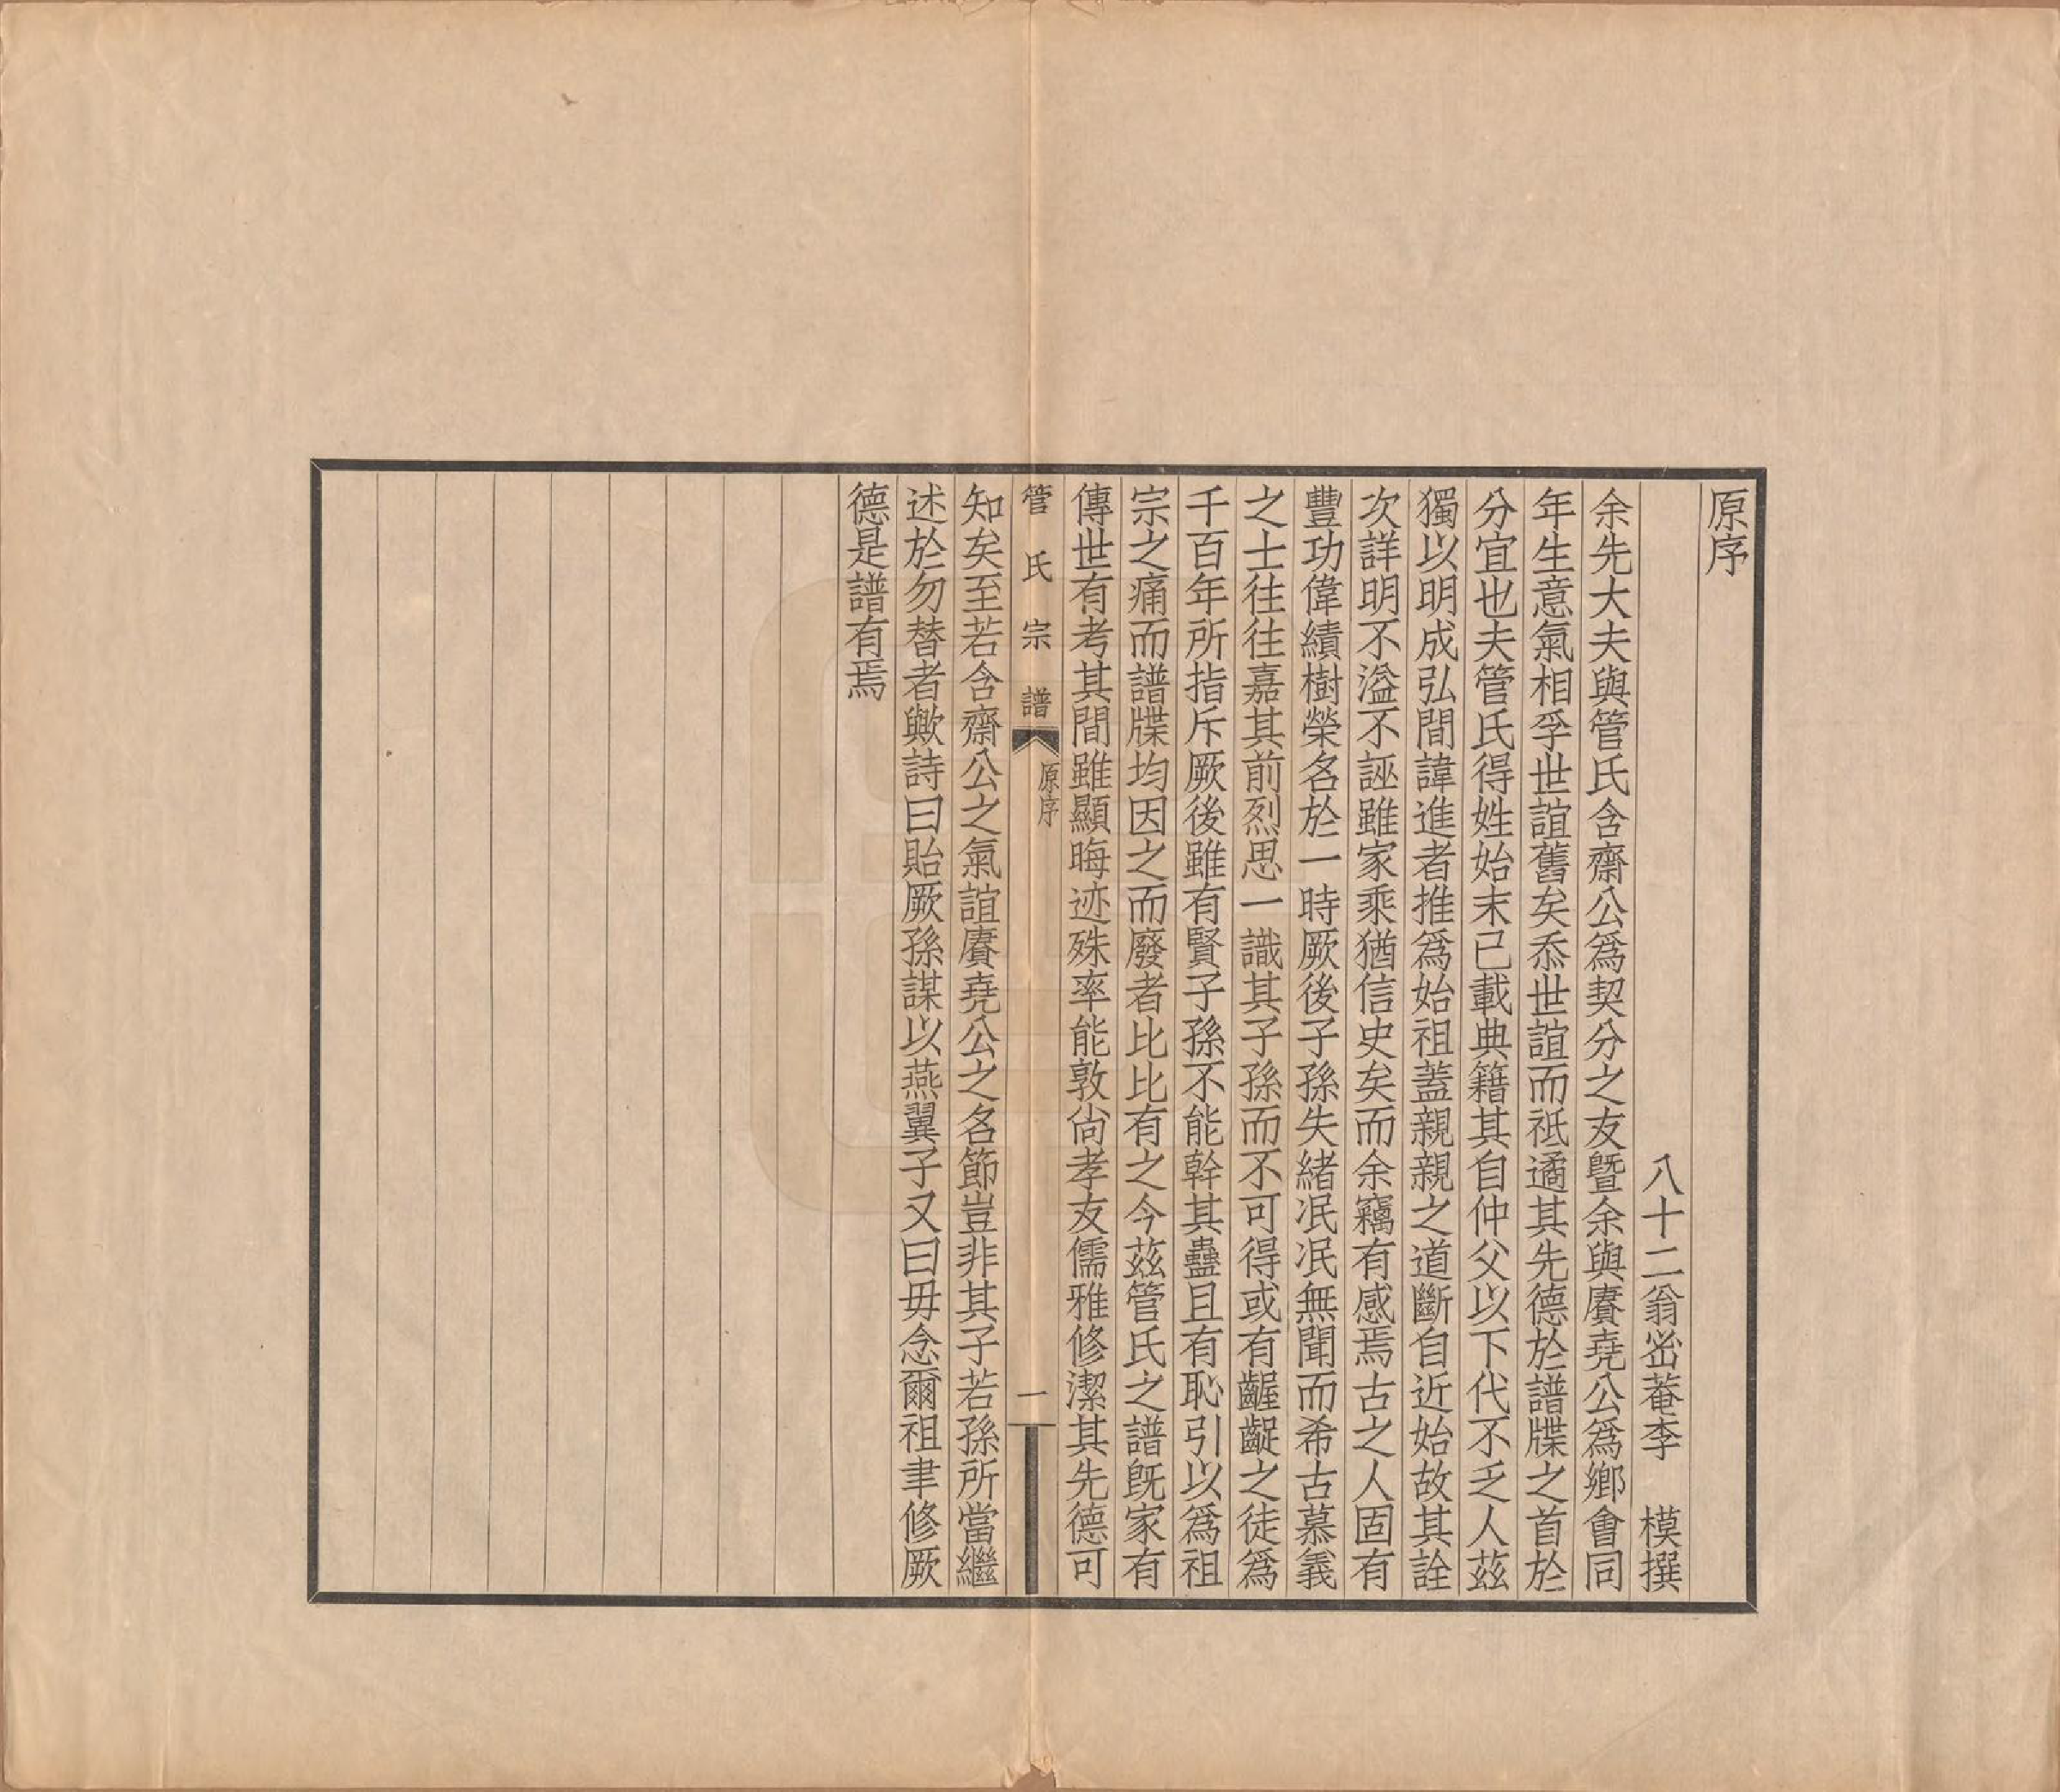 原序
八十二翁峃菴李　模撰
余先大夫與管氏含齋公爲契分之友暨余與賡堯公爲鄉會同
年生意氣相孚世誼舊矣忝世誼而祗遹其先德於譜牒之首於
分宜也夫管氏得姓始末已載典籍其自仲父以下代不乏人茲
獨以明成弘間諱進者推爲始祖蓋親親之道斷自近始故其詮
次詳明不溢不誣雖家乘猶信史矣而余竊有感焉古之人固有
豐功偉績樹榮名於一時厥後子孫失緒泯泯無聞而希古慕義
之士往往嘉其前烈思一識其子孫而不可得或有齷齪之徒爲
千百年所指斥厥後雖有賢子孫不能幹其蠱且有恥引以爲祖
宗之痛而譜牒均因之而廢者比比有之今茲管氏之譜旣家有
傳世有考其間雖顯晦迹殊率能敦尙孝友儒雅修潔其先德可
管氏宗譜
原序
一
知矣至若含齋公之氣誼賡堯公之名節豈非其子若孫所當繼
述於勿替者歟詩曰貽厥孫謀以燕翼子又曰毋念爾祖聿修厥
德是譜有焉